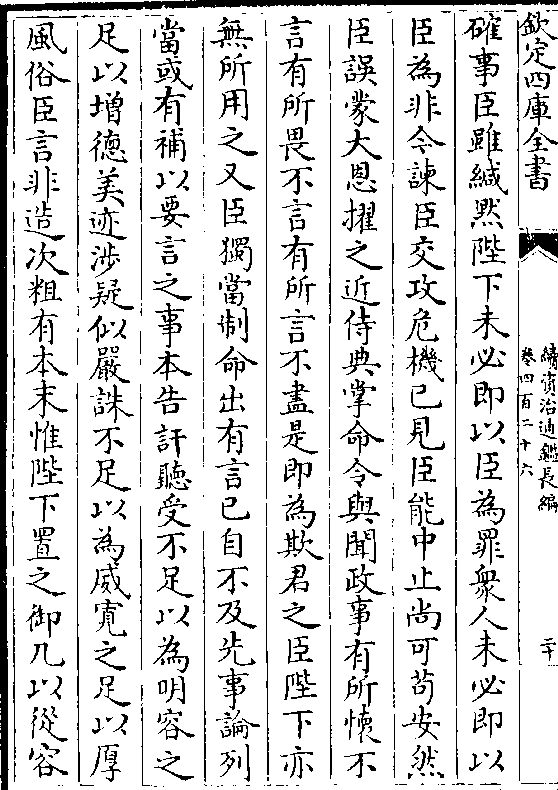 欽定四庫全書
續資治通鑑長編
卷四百二十六
二十
確事臣雖緘黙陛下未必即以臣為罪衆人未必即以
臣為非今諫臣交攻危機已見臣能中止尚可苟安然
臣誤蒙大恩擢之近侍典掌命令與聞政事有所懷不
言有所畏不言有所言不盡是即為欺君之臣陛下亦
無所用之又臣獨當制命出有言已自不及先事論列
當或有補以要言之事本告訐聽受不足以為明容之
足以增德美迹涉疑似嚴誅不足以為威寛之足以厚
風俗臣言非造次粗有本末惟陛下置之御几以從容